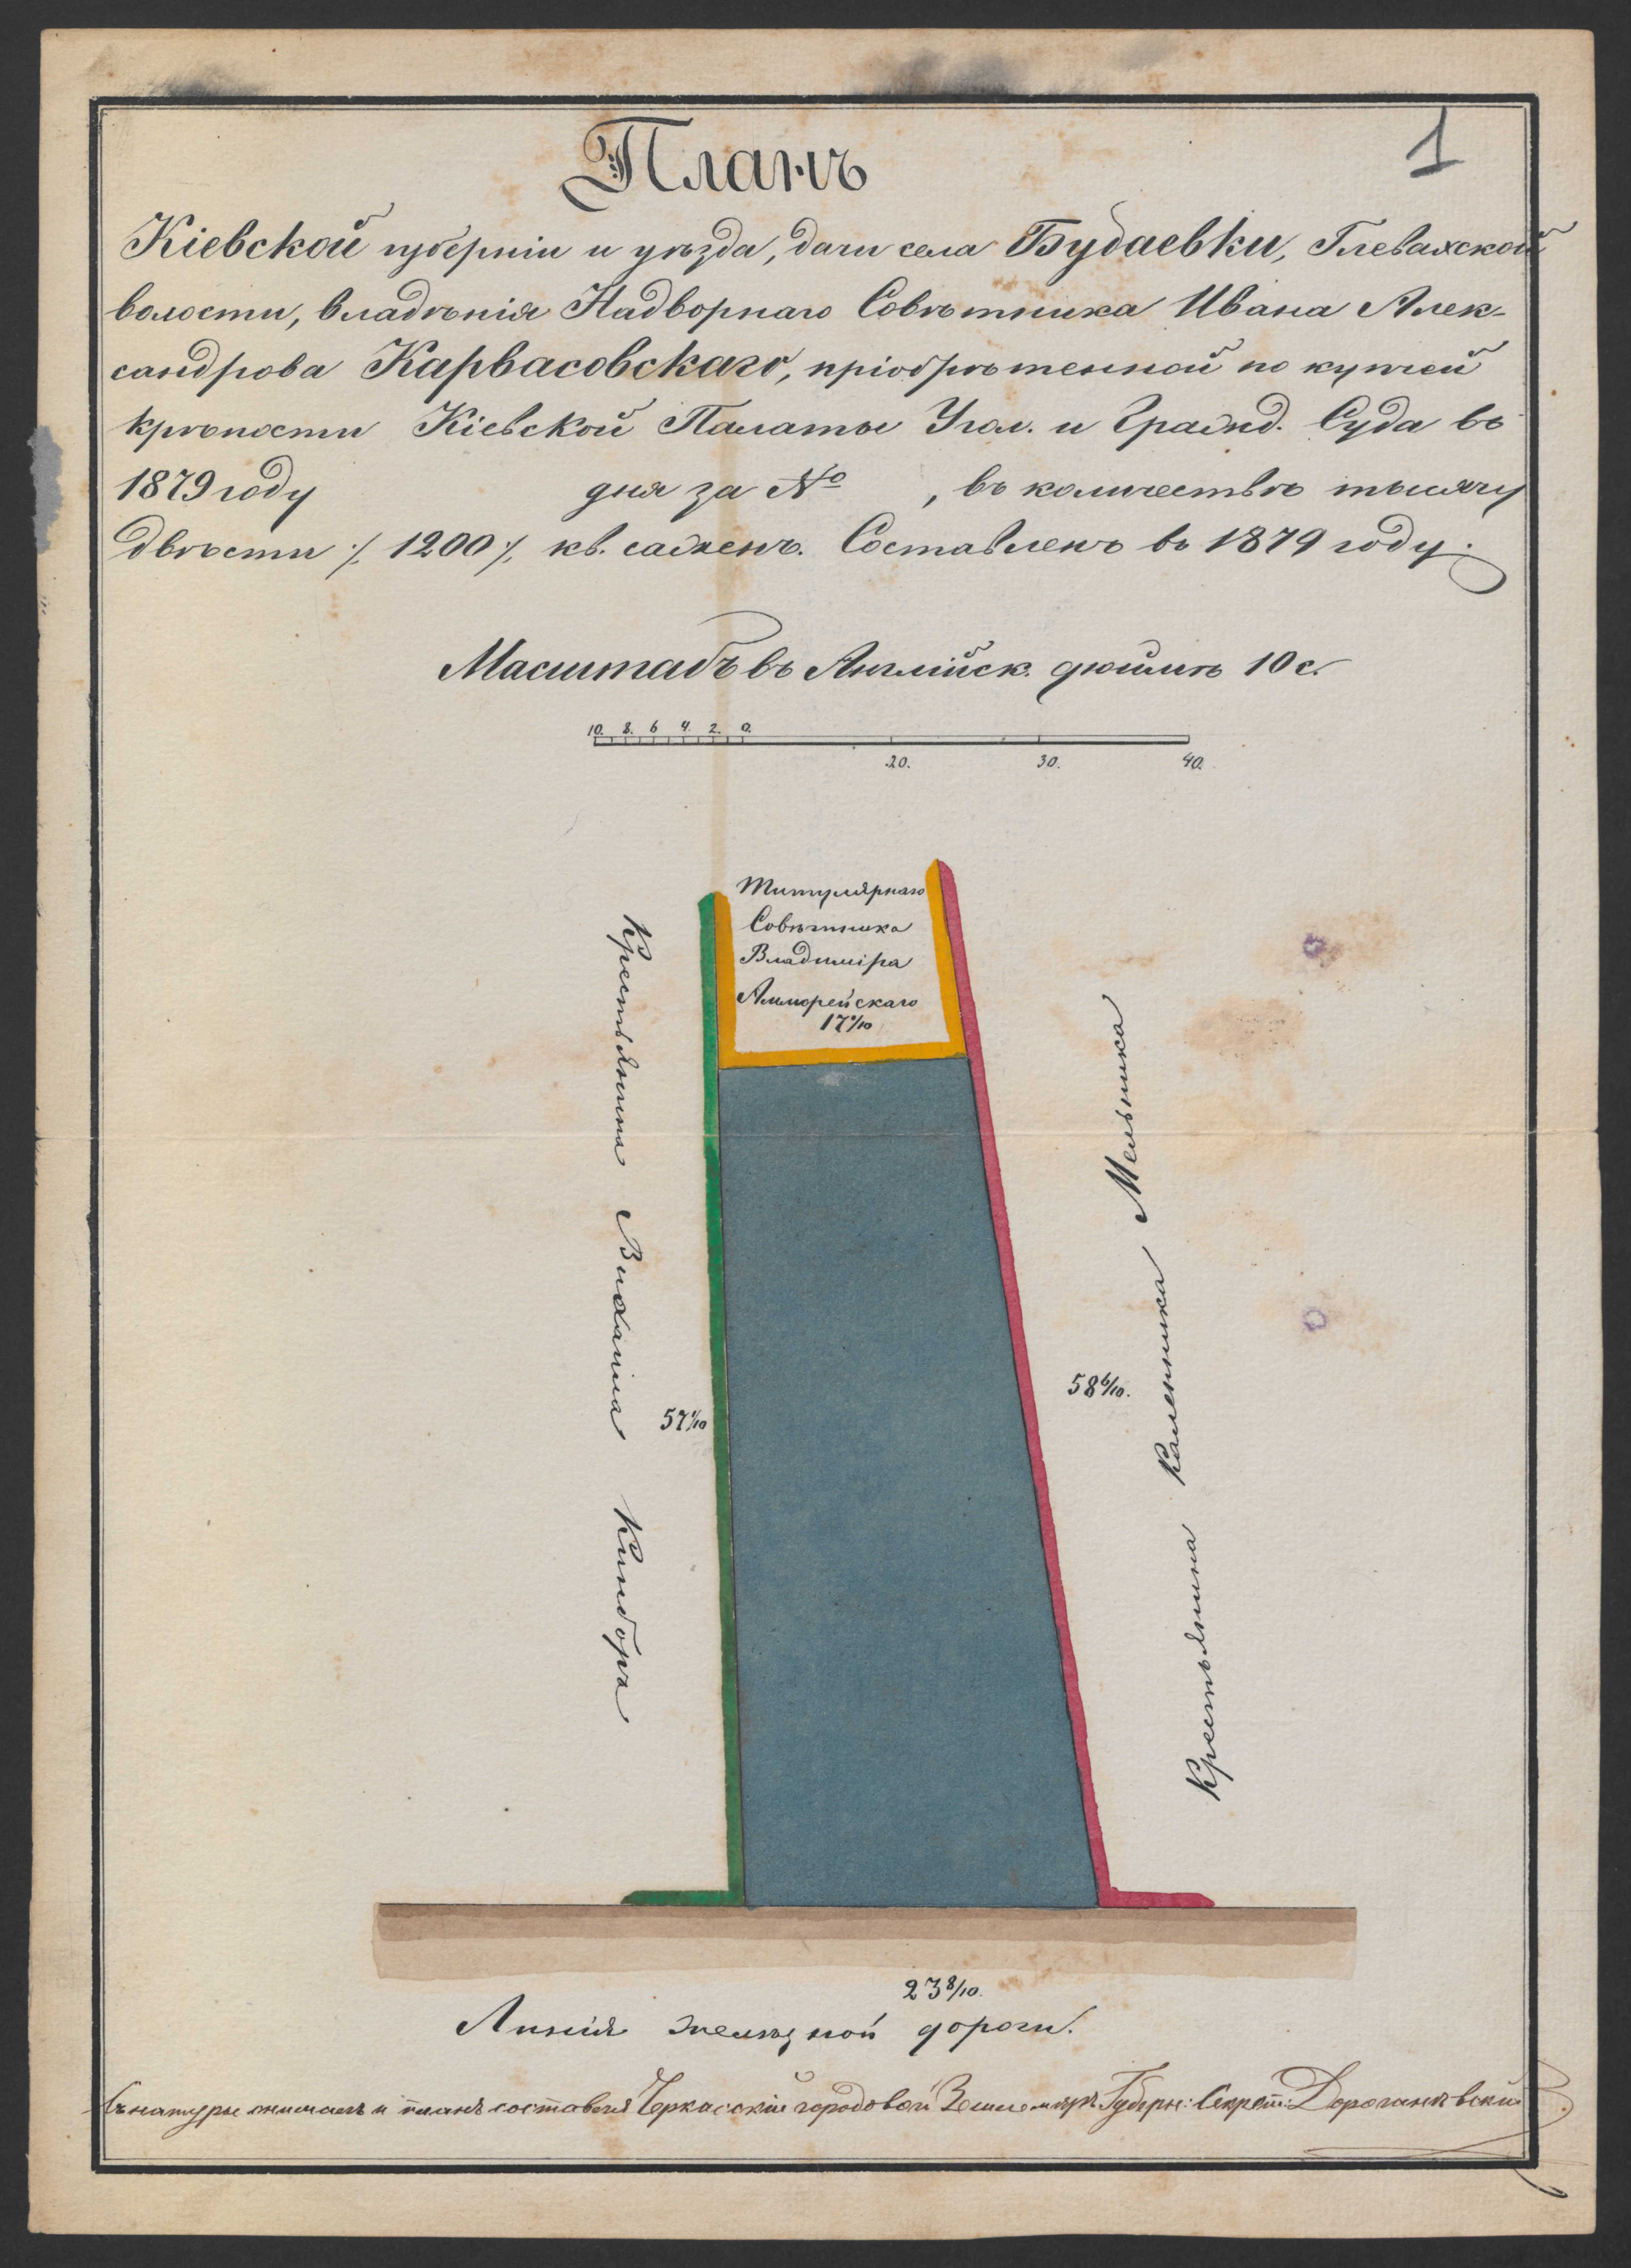 Планъ
1
Кіевской губерніи и уѣзда, дачи села Будаевки, Глевахской
волости, владѣнія Надворнаго Совѣтника Ивана Алек-
сандрова Карвасовскаго, пріобрѣтенной по купчей
крѣпости Кіевской Палаты Угол. и Гражд. Суда въ
1879 году дня за № , въ количествѣ тысячу
двѣсти ·/. 1200 ·/. кв. саженъ. Составленъ въ 1879 году.
Масштабъ въ Англійск. дюймѣ 10 с.
10. 8. 6 4. 2. 0.
20. 30. 40.
Титулярнаго
Совѣтника
Владиміра
17
Крестьянина Михаила Киндора
57
58 6/10.
Крестьянина Каленника Мельника
23 8/10.
Линія желѣзной дороги.
Съ натуры снималъ и планъ составлялъ Черкасскій городовой Землемѣръ Губерн: Секрет: